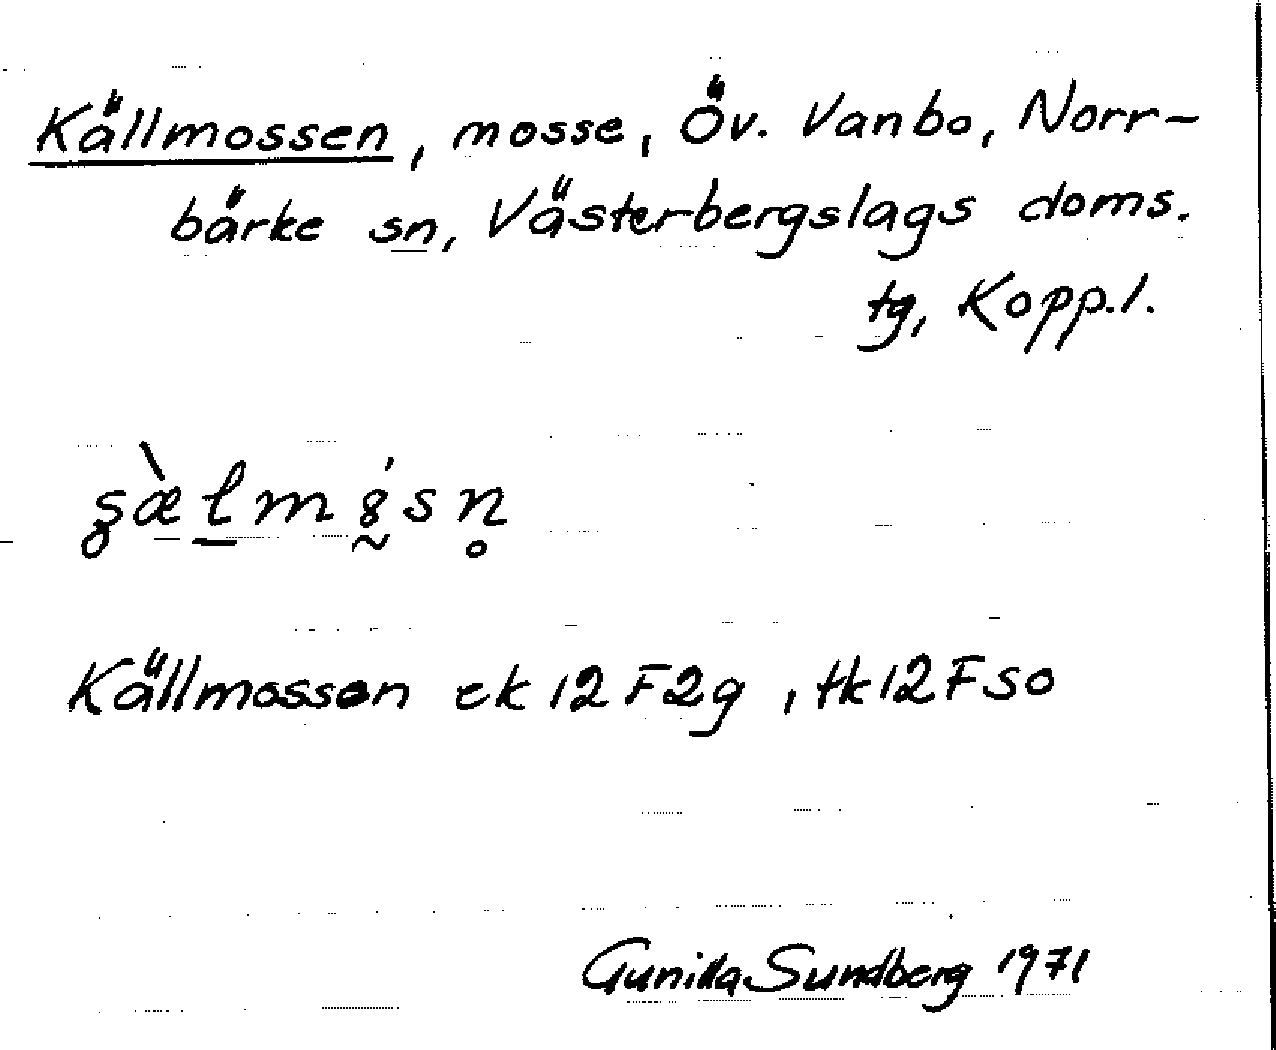 Källmossen, mosse, Öv. Vanbo, Norr-
bärke sn, Västerbergslags doms.
tg, Kopp.l.
Källmossen ek 12 F2g, tk 12 F so
Gunilla Sundberg 1971